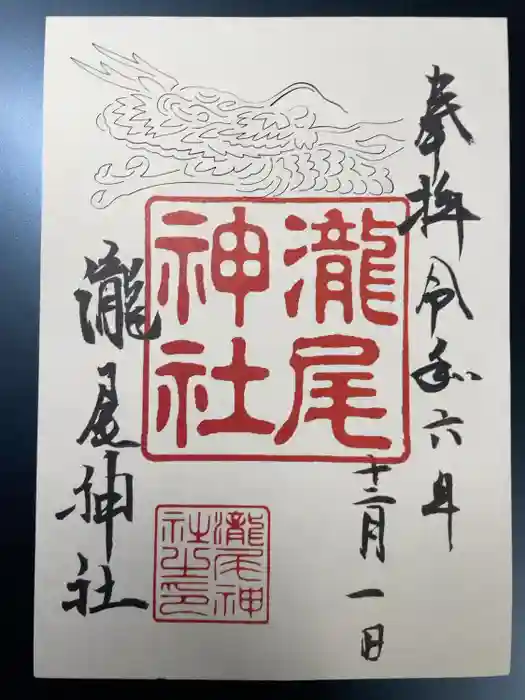 奉拝 令和六年
十二月一日
瀧尾
神社
瀧尾神
社之印
瀧尾神社